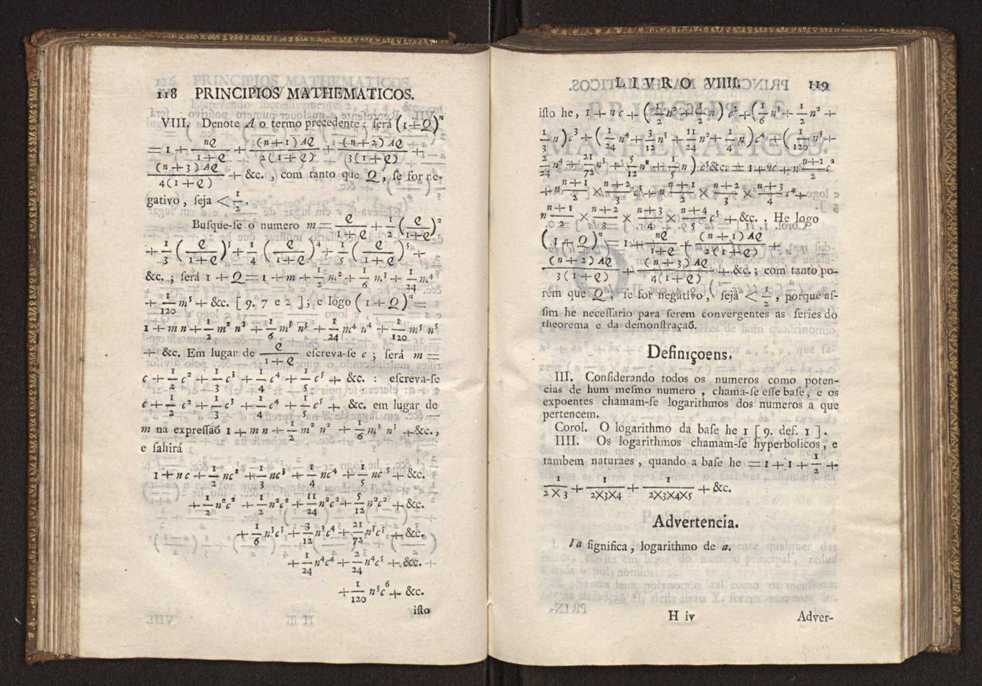 118 PRINCIPIOS MATHEMATICOS.
VIII. Denote A o termo precedente; ſerá (1+Q)ⁿ
= 1 + nQ/(1+Q) + (n+1)AQ/2(1+Q) + (n+2)AQ/(3(1+Q) +
(n+3)AQ/4(1+Q) + &c. , com tanto que Q, ſe for ne-
gativo , ſeja < 1/2.
Buſque-ſe o numero m = Q/(1+Q) + 1/2 (Q/(1+Q))²
+ 1/3 (Q/(1+Q))³ + 1/4 (Q/(1+Q))⁴ + 1/5 (Q/(1+Q))⁵ +
&c. ; ſerá 1 + Q = 1 + m + 1/2 m² + 1/6 m³ + 1/24 m⁴
+ 1/120 m⁵ + &c. [ 9, 7 e 2 ]; e logo (1+Q)ⁿ =
1 + mn + 1/2 m² n² + 1/6 m³ n³ + 1/24 m⁴ n⁴ + 1/120 m⁵ n⁵
+ &c. Em lugar de Q/(1+Q) eſcreva-ſe c ; ſerá m =
c + 1/2 c² + 1/3 c³ + 1/4 c⁴ + 1/5 c⁵ + &c. : eſcreva-ſe
c + 1/2 c² + 1/3 c³ + 1/4 c⁴ + 1/5 c⁵ + &c. em lugar de
m na expreſſaõ 1 + mn + 1/2 m² n² + 1/6 m³ n³ + &c.,
e ſahirá
1 + nc + 1/2 nc² + 1/3 nc³ + 1/4 nc⁴ + 1/5 nc⁵ + &c.
+ 1/2 n²c² + 1/2 n²c³ + 11/24 n²c⁴ + 5/12 n²c⁵ + &c.
+ 1/6 n³c³ + 3/12 n³c⁴ + 21/72 n³c⁵ + &c.
+ 1/24 n⁴c⁴ + 2/24 n⁴c⁵ + &c.
+ 1/120 n⁵c⁶ + &c.
iſto
LIVRO VIIII. 119
iſto he, 1 + nc + (1/2 n² + 1/2 n) c² + (1/6 n³ + 1/2 n² +
1/3 n) c³ + (1/24 n⁴ + 3/12 n³ + 11/24 n² + 1/4 n) c⁴ + (1/120 n⁵ +
2/24 n⁴ + 21/72 n³ + 5/12 n² + 1/5 n) c⁵ &c. = 1 + nc + n (n+1)/2 c²
+ n (n+1)/2 × (n+2)/3 c³ + n (n+1)/2 × (n+2)/3 × (n+3)/4 c⁴ +
n (n+1)/2 × (n+2)/3 × (n+3)/4 × (n+4)/5 c⁵ + &c. . He logo
(1+Q)ⁿ = 1 + nQ/(1+Q) + (n+1)AQ/2(1+Q) +
(n+2)AQ/3(1+Q) + (n+3)AQ/4(1+Q) + &c. ; com tanto po-
rém que Q, ſe for negativo, ſeja < 1/2, porque aſ-
ſim he neceſſario para ſerem convergentes as ſeries do
theorema e da demonſtraçaõ.
Definiçoens.
III. Conſiderando todos os numeros como poten-
cias de hum meſmo numero , chama-ſe eſſe baſe, e os
expoentes chamam-ſe logarithmos dos numeros a que
pertencem.
Corol. O logarithmo da baſe he 1 [ 9. def. 1 ].
IIII. Os logarithmos chamam-ſe hyperbolicos, e
tambem naturaes , quando a baſe he = 1 + 1 + 1/2 +
1/2×3 + 1/2×3×4 + 1/2×3×4×5 + &c.
Advertencia.
la ſignifica , logarithmo de a.
H iv Adver-